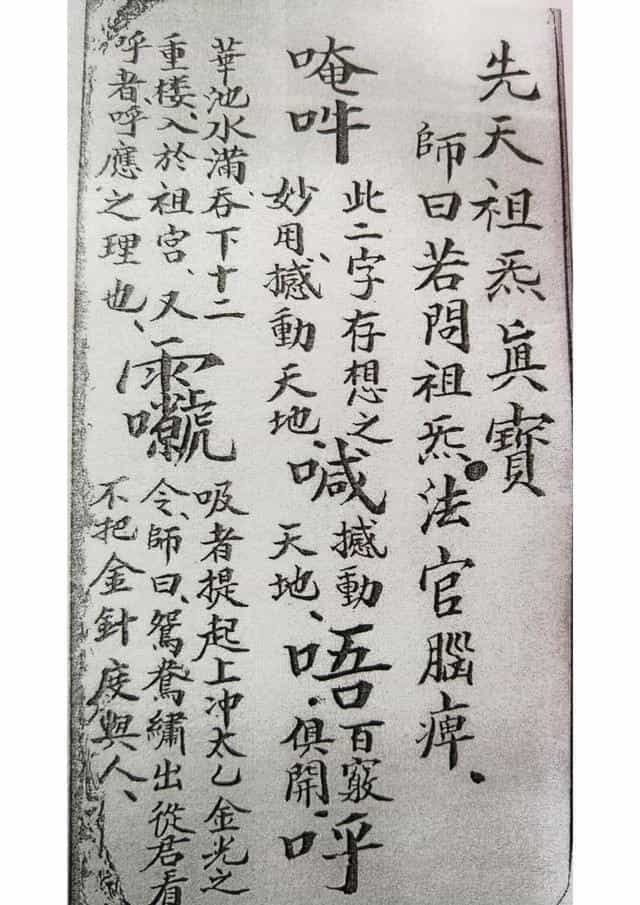 先天祖炁眞寳
師曰若問祖炁法官腦痺、
唵吽
此二字存想之
妙用、撼動天地、
喊
撼動
天地、
唔
百竅
俱開、
呼
華池水滿吞下十二
重楼、入於祖宮、又
呼者、呼應之理也、
吸者提起上冲太乙金光之
令、師曰、鴛鴦繡出從君看
不把金針度與人、